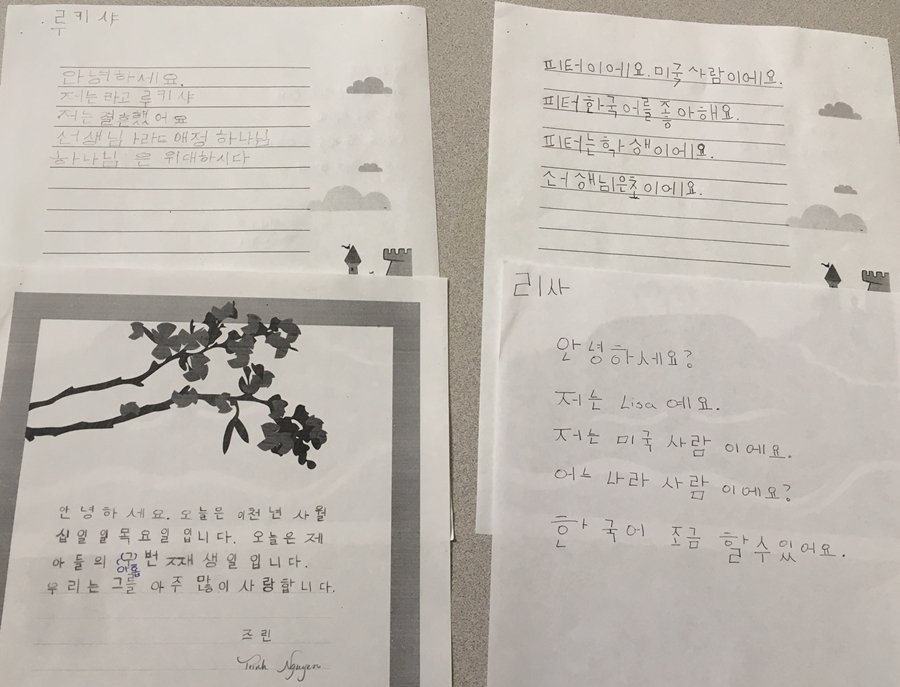 루키샤
안녕하세요.
저는 라고 루키샤
저는 결혼했어요
선생님 애정 하나님
하나님은 위대하시다
피터이에요. 미국 사람이에요.
피터한국어를 좋아해요.
피터는 학생이에요.
선생님은초이에요.
안녕하세요. 오늘은 이천년 사월
십일일 목요일 입니다. 오늘은 제
아들의 (구)번 째 생일입니다.
아홉
우리는 그를 아주 많이 사랑합니다.
즈린
Trinh Nguyen
리사
안녕하세요?
저는 Lisa 예요.
저는 미국 사람 이에요.
어느 나라 사람 이에요?
한국어 조금 할 수 있어요.